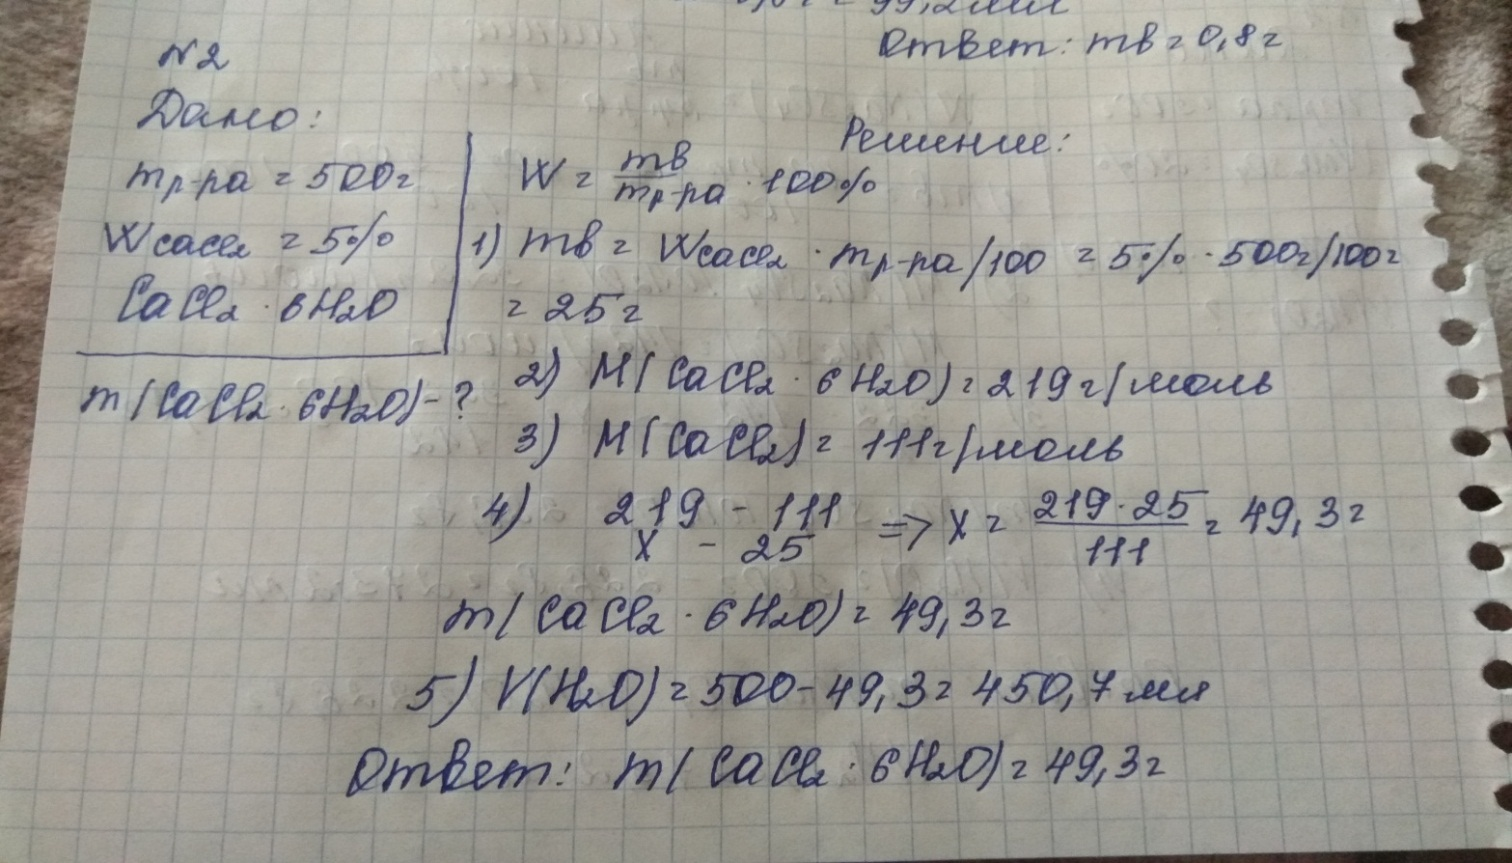 = 99,2 мл
Ответ: mв = 0,8г
N2
Дано:
mр-ра = 500г
WCaCl2 = 5%
CaCl2 · 6H2O
m(CaCl2 · 6H2O) - ?
Решение:
W = mв / mр-ра · 100%
1) mв = WCaCl2 · mр-ра/100 = 5% · 500г/100г
= 25г
2) M(CaCl2 · 6H2O) = 219г/моль
3) M(CaCl2) = 111г/моль
4) 219 - 111 => X = 219·25 / 111 = 49,3г
X - 25
m(CaCl2 · 6H2O) = 49,3г
5) V(H2O) = 500-49,3 = 450,7мл
Ответ: m(CaCl2 · 6H2O) = 49,3г